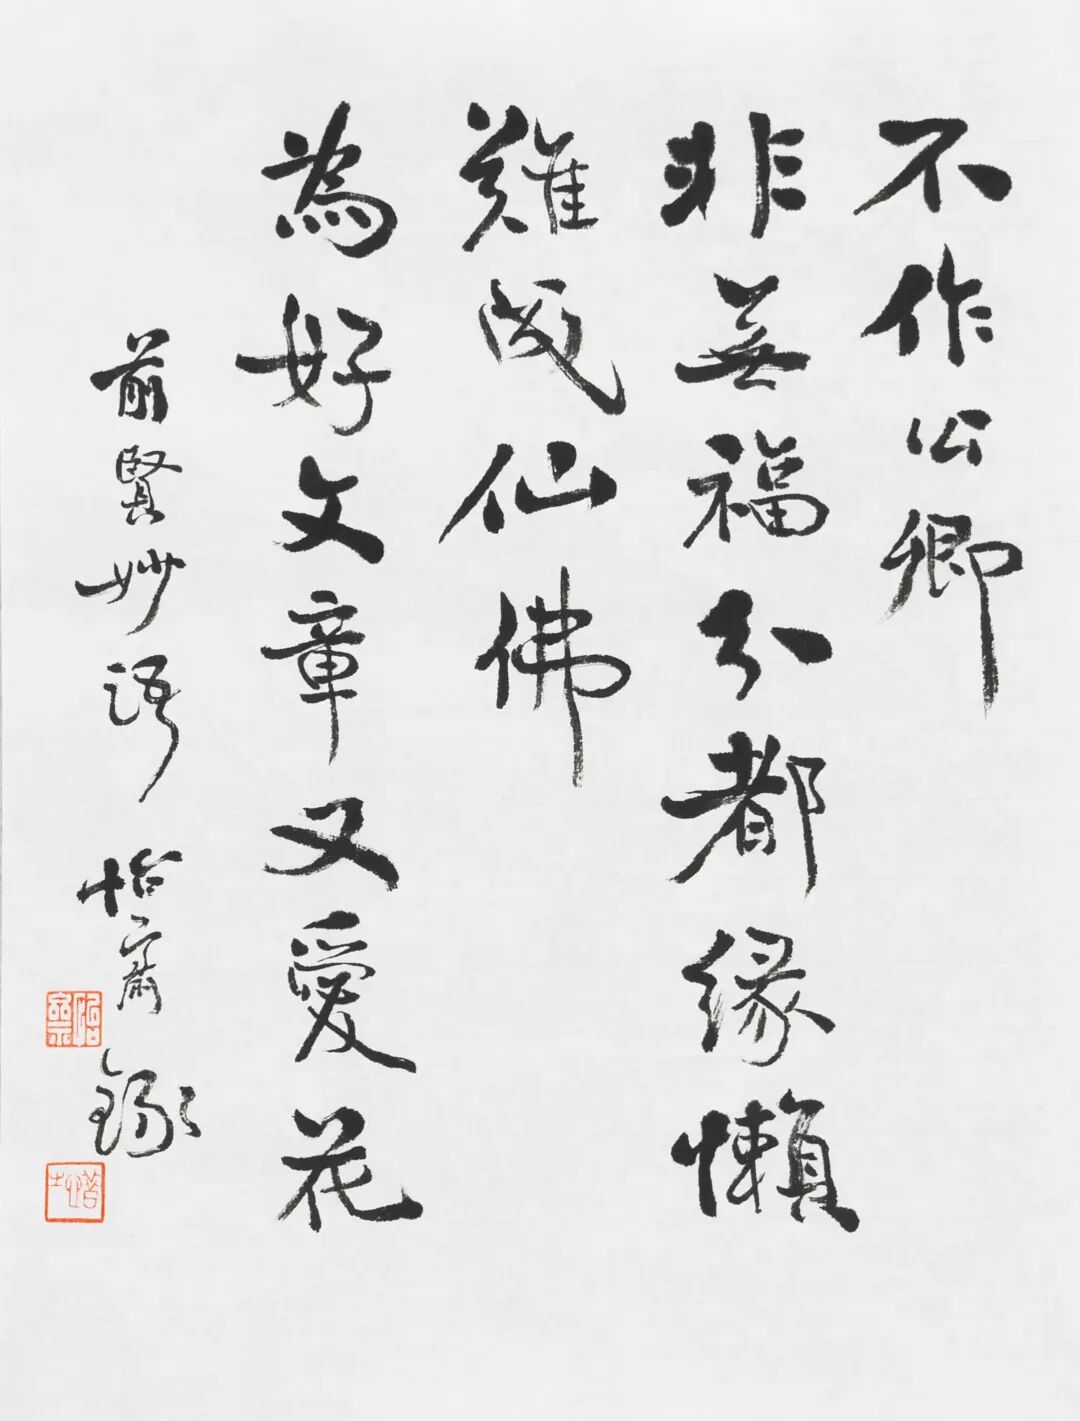 不作公卿
非無福分都緣懶
難成仙佛
為好文章又愛花
前賢妙語 怡齋錄